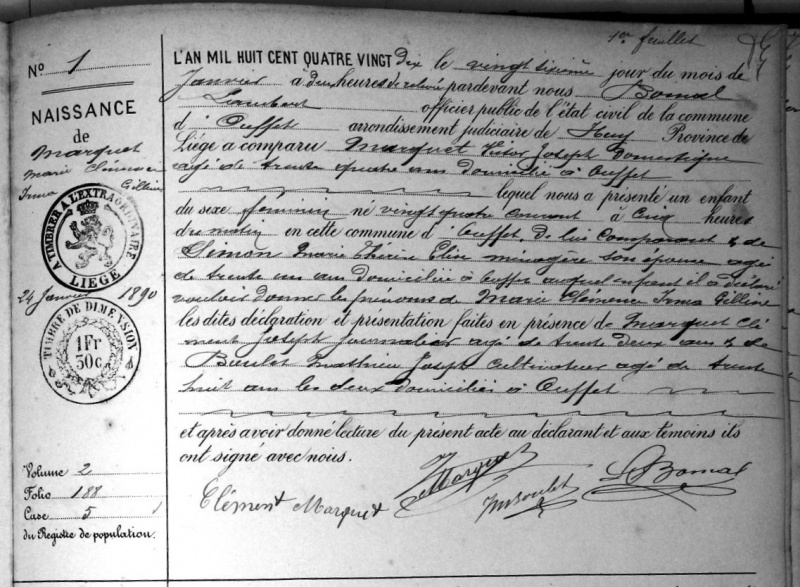 1er feuillet
N° 1
NAISSANCE
de
Marquet
Marie Clémence
Irma
A TIMBRER A L'EXTRAORDINAIRE
LIEGE
24 Janvier 1890
TIMBRE DE DIMENSION
1 Fr
50 c.
Volume 2
Folio 188
Case 5
du Registre de population.
L'AN MIL HUIT CENT QUATRE VINGT Dix le vingt sixième jour du mois de
Janvier à deux heures de relevée pardevant nous Bomal
Lambert officier public de l'état civil de la commune
d' Ouffet arrondissement judiciaire de Huy Province de
Liége a comparu Marquet Victor Joseph Domestique
agé de trente quatre ans domicilié à Ouffet
lequel nous a présenté un enfant
du sexe féminin né vingt quatre courant à cinq heures
du matin en cette commune d' Ouffet, de lui comparant & de
Simon Marie Thérèse Elise ménagère son épouse agée
de trente un ans domiciliée à Ouffet auquel enfant il a déclaré
vouloir donner les prénoms de Marie Clémence Irma
les dites déclaration et présentation faites en présence de Marquet Clé
ment Joseph Journalier agé de trente deux ans & de
Boulet Mathieu Joseph Cultivateur agé de trente
huit ans les deux domiciliés à Ouffet
et après avoir donné lecture du présent acte au déclarant et aux témoins ils
ont signé avec nous.
Clément Marquet Marquet Boulet L Bomal